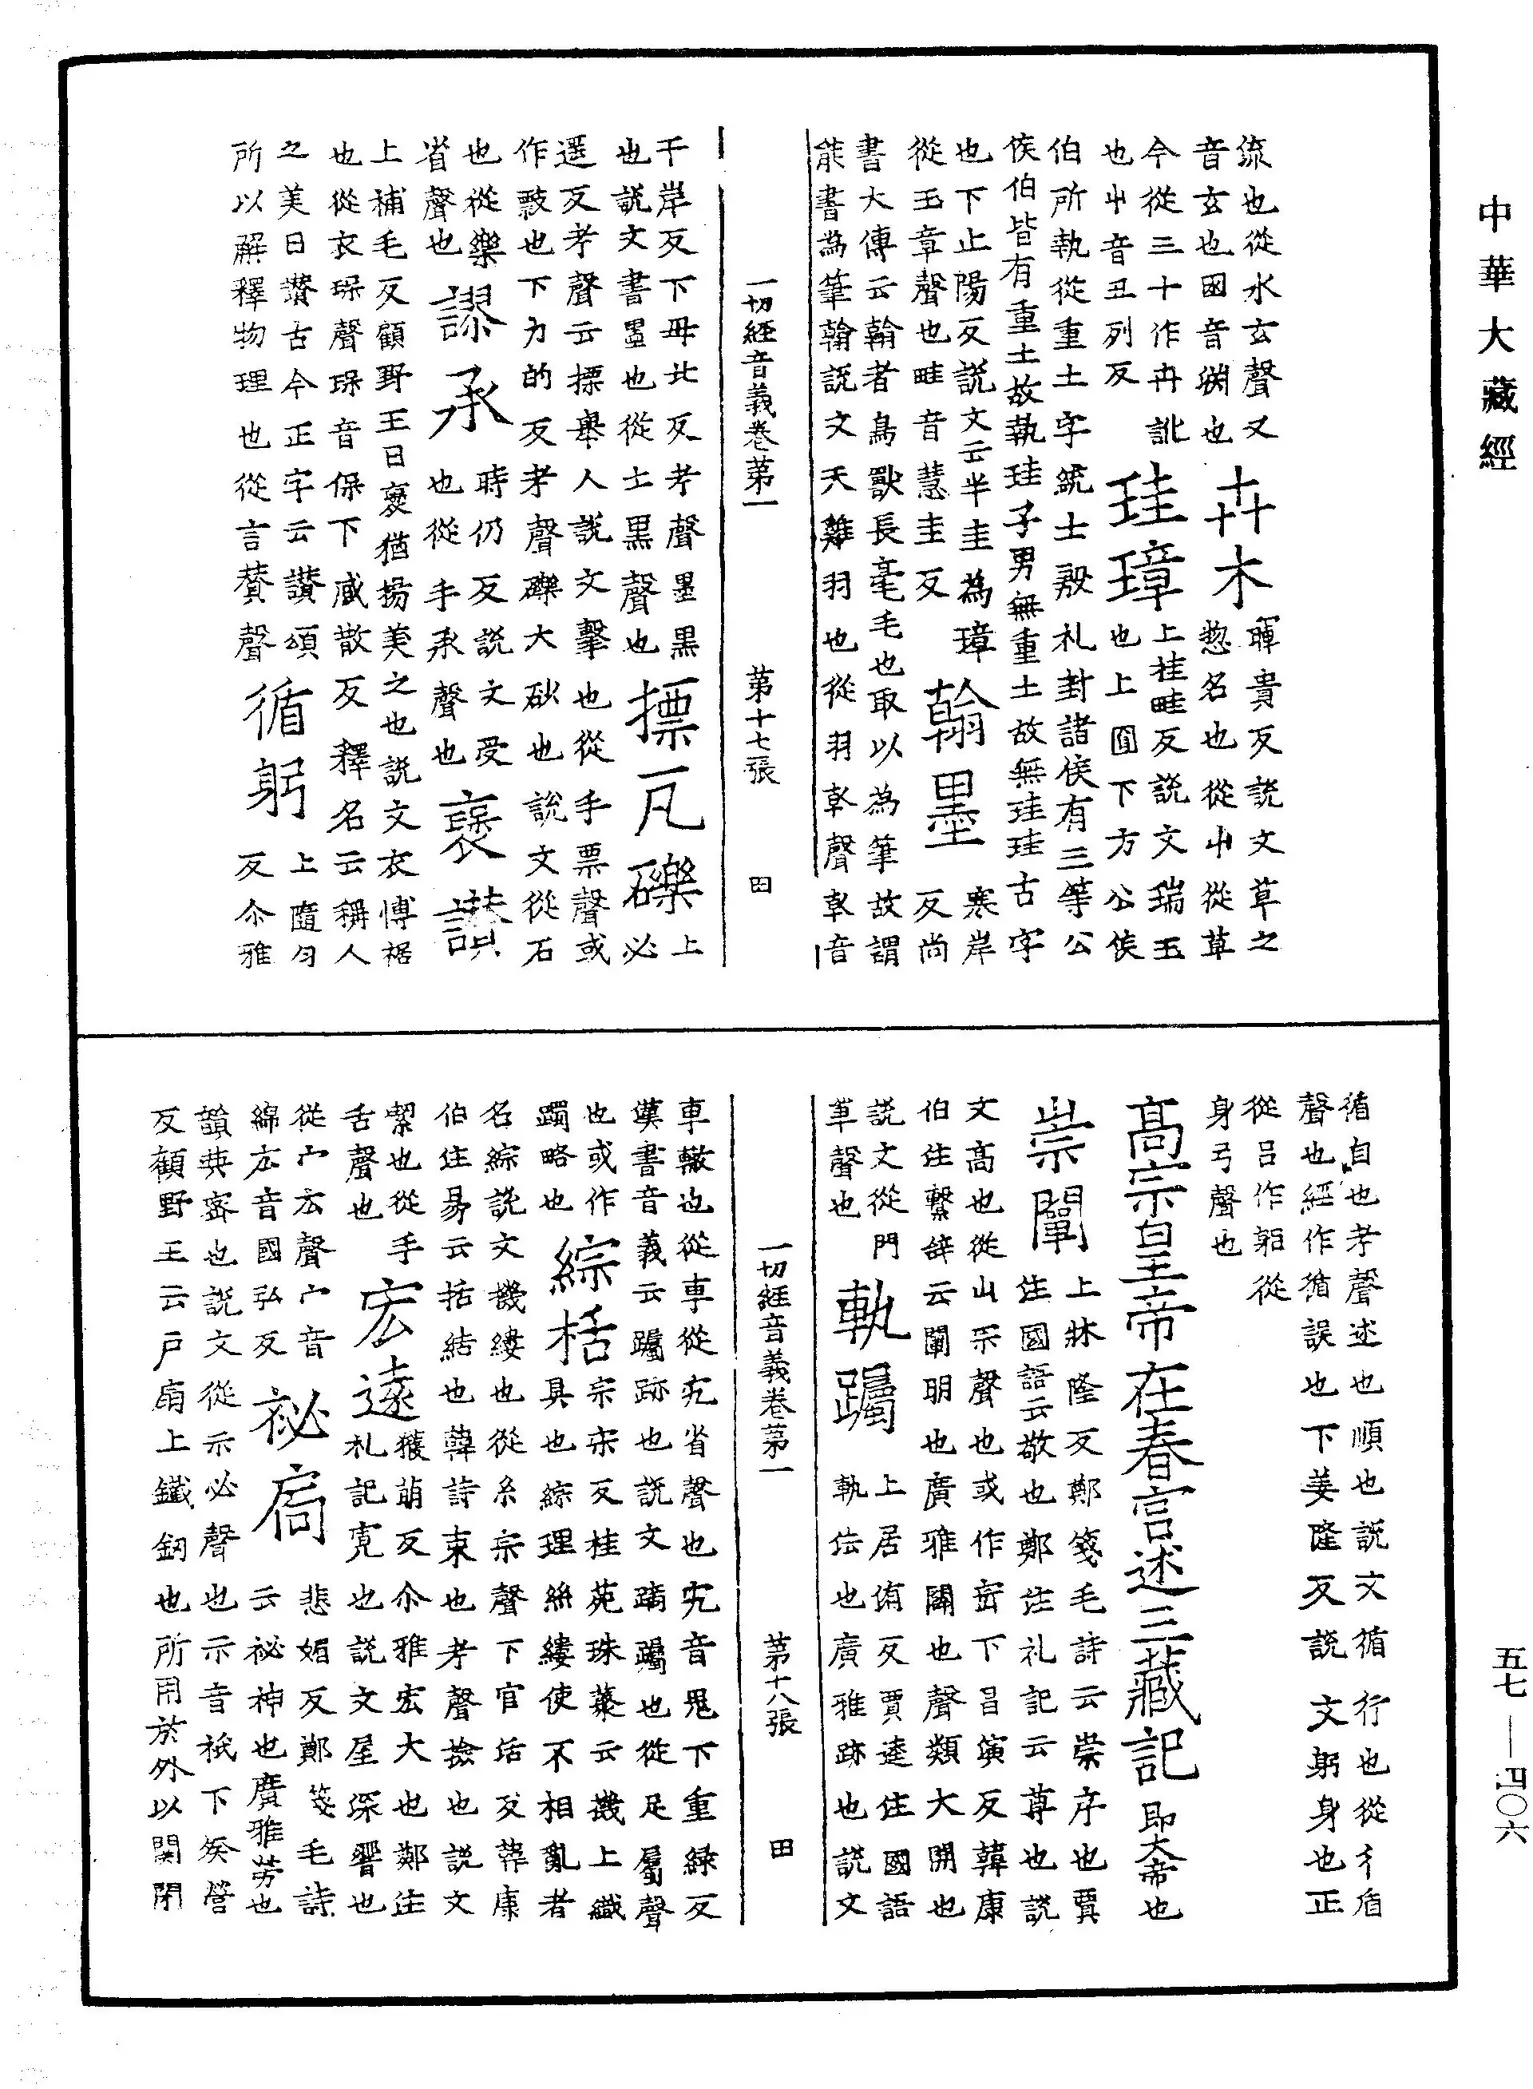 中華大藏經
流也從水玄聲又
音玄也囦音渕也
卉木
暉貴反說文草之
惣名也從屮從草
今從三十作卉訛
也屮音丑列反
珪璋
上桂畦反說文瑞玉
也上圓下方公侯
伯所執從重土字統士殷礼封諸侯有三等公
侯伯皆有重土故執珪子男無重土故無珪珪古字
也下止陽反說文云半圭為璋
從玉章聲也畦音慧圭反
翰墨
寒岸
反尚
書大傳云翰者鳥獸長毫毛也取以為筆故謂
能書為筆翰說文天雞羽也從羽倝聲倝音
一切經音義卷第一 第十七張 田
干岸反下毋北反考聲墨黑
也說文書墨也從土黑聲也
摽瓦礫
上
必
遥反考聲云摽舉人說文擊也從手票聲或
作也下力的反考聲礫大砂也說文從石
也從樂
省聲也
謬承
時仍反說文受
也從手丞聲也
褒讃
上補毛反顧野王曰褒猶揚美之也說文衣愽裾
也從衣㻄聲㻄音保下臧散反釋名云稱人
之美曰讃古今正字云讃頌
所以解釋物理也從言賛聲
循躬
上隨勻
反尒雅
循自也考聲述也順也說文循行也從彳盾
聲也經作循誤也下姜隆反說文躬身也正
從呂作躳從
身弓聲也
高宗皇帝在春宮述三藏記
即大帝也
崇闡
上牀隆反鄭箋毛詩云崇序也賈
注國語云敬也鄭注礼記云尊也說
文高也從山宗聲也或作崈下昌演反韓康
伯注繫辭云闡明也廣雅闢也聲類大開也
說文從門
單聲也
軌躅
上居洧反賈逵注國語
軌法也廣雅跡也說文
車轍也從車從宄省聲也宄音鬼下重緑反
漢書音義云躅跡也說文蹢躅也從足蜀聲
也或作
躅略也
綜括
宗宋反桂菀珠藂云機上織
具也綜理絲縷使不相亂者
名綜說文機縷也從糸宗聲下官活反韓康
伯注易云括結也韓詩束也考聲撿也說文
絜也從手
舌聲也
宏遠
獲萌反尒雅宏大也鄭注
礼記寛也說文屋深響也
從宀厷聲宀音
綿厷音國弘反
祕扃
悲媚反鄭箋毛詩
云祕神也廣雅勞也
韻英密也說文從示必聲也示音祇下癸營
反顧野王云戶扇上鐵鈕也所用於外以関閉
一切經音義卷第一 第十八張 田
五七—四〇六